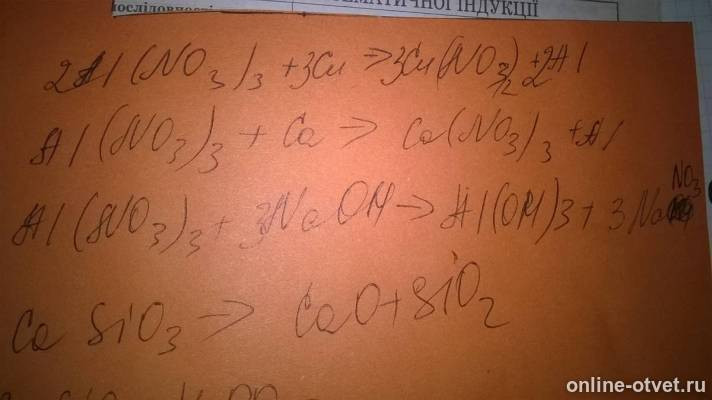 послідовності МАТЕМАТИЧНОЇ ІНДУКЦІЇ
2Al(NO3)3 + 3Cu → 3Cu(NO3)2 + 2Al
Al(NO3)3 + Ca → Ca(NO3)3 + Al
Al(NO3)3 + 3NaOH → Al(OH)3 + 3NaNO3
CaSiO3 → CaO + SiO2
online-otvet.ru